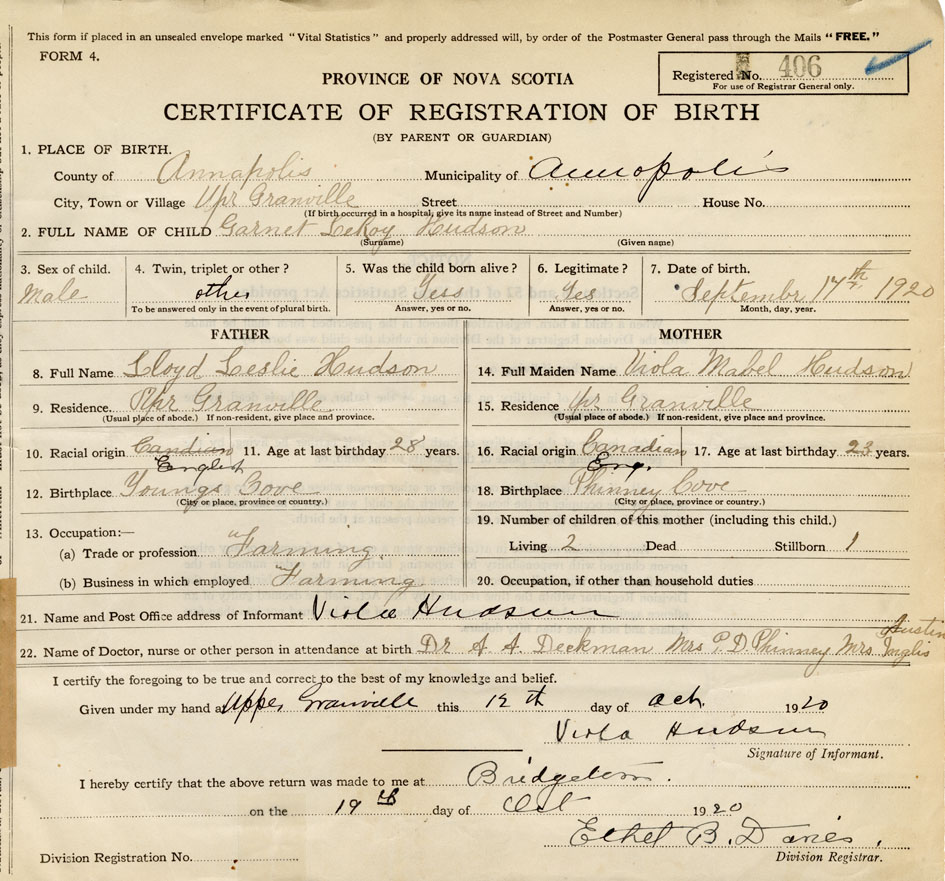 This form if placed in an unsealed envelope marked "Vital Statistics" and properly addressed will, by order of the Postmaster General pass through the Mails "FREE."
FORM 4.
PROVINCE OF NOVA SCOTIA
Registered No. 406
For use of Registrar General only.
CERTIFICATE OF REGISTRATION OF BIRTH
(BY PARENT OR GUARDIAN)
1. PLACE OF BIRTH.
County of Annapolis Municipality of Annapolis
City, Town or Village Upr Granville Street House No.
(If birth occurred in a hospital, give its name instead of Street and Number)
2. FULL NAME OF CHILD Garnet LeRoy Hudson
(Surname) (Given name)
3. Sex of child. 4. Twin, triplet or other? 5. Was the child born alive? 6. Legitimate? 7. Date of birth.
Male other Yess Yes September 17th 1920
To be answered only in the event of plural birth. Answer, yes or no. Answer, yes or no. Month, day, year.
FATHER MOTHER
8. Full Name Lloyd Leslie Hudson 14. Full Maiden Name Viola Mabel Hudson
9. Residence. Upr Granville 15. Residence Upr Granville
(Usual place of abode.) If non-resident, give place and province. (Usual place of abode.) If non-resident, give place and province.
10. Racial origin Candian 11. Age at last birthday 28 years. 16. Racial origin Canadian 17. Age at last birthday 23 years.
English Eng.
12. Birthplace Youngs Cove 18. Birthplace Phinney Cove
(City or place, province or country.) (City or place, province or country.)
19. Number of children of this mother (including this child.)
13. Occupation:—
(a) Trade or profession "Farming Living 2 Dead Stillborn 1
(b) Business in which employed Farming 20. Occupation, if other than household duties
21. Name and Post Office address of Informant Viola Hudson
22. Name of Doctor, nurse or other person in attendance at birth Dr A. A. Deckman Mrs P. D. Phinney Mrs Austin Inglis
I certify the foregoing to be true and correct to the best of my knowledge and belief.
Given under my hand a Upper Granville this 12th day of Oct. 1920
Viola Hudson
Signature of Informant.
I hereby certify that the above return was made to me at Bridgetown.
on the 19th day of Oct 1920
Ethel B. Davies.
Division Registration No. Division Registrar.